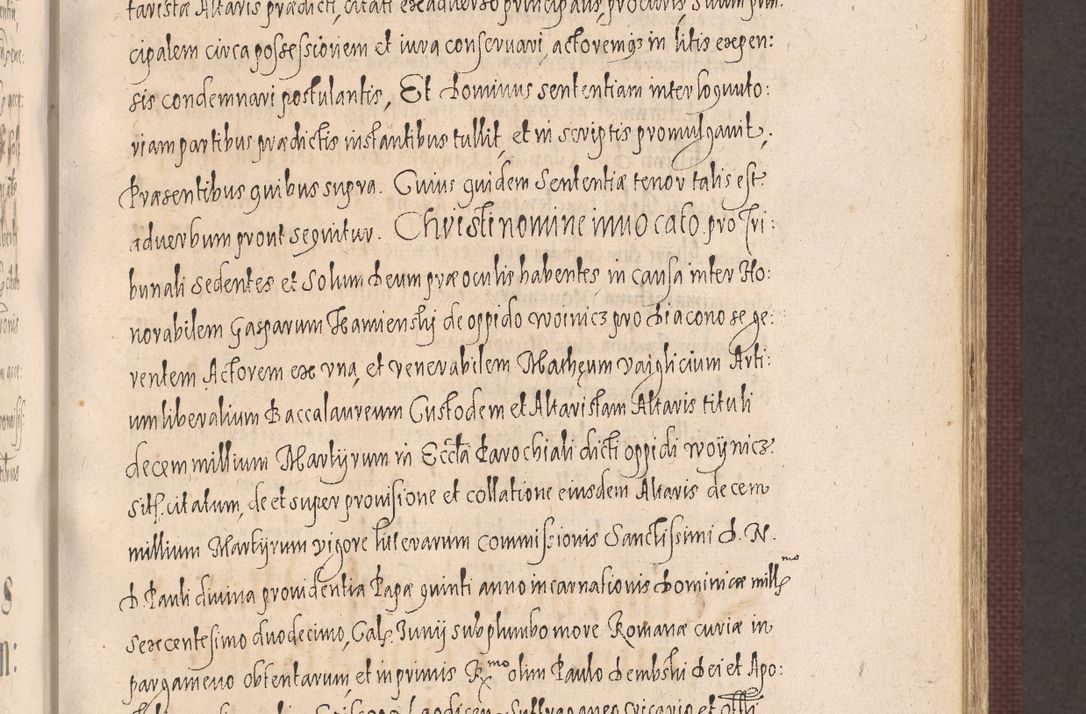 taristæ Altaris prædicti, citati ex adverso principalis, procuris, suum prin
cipalem circa possessionem et iura conservari, actoremq3 in litis expen:
sis condemnari postulantis, Et Dominus sententiam interloquuto:
riam partibus prædictis instantibus tullit, et in scriptis promulgavit,
Præsentibus quibus supra. Cuius quidem Sententiæ tenor talis est
ad verbum prout sequitur. Christi nomine invocato. pro Tri:
bunali Sedentes et Solum Deum præ oculis habentes in causa inter Ho:
norabilem Gasparum Kamienskij de oppido woinicz pro Diacono se ge:
rentem Actorem ex una, et venerabilem Mathęum vaiglicium Arti:
um liberalium Baccalaureum Custodem et Altaristam Altaris tituli
decem millium Martijrum in Eccła Parochiali dicti oppidi woÿnicz
sits. citatum, de et super provisione et collatione eiusdem Altaris decem
millium Martijrum vigore litterarum commissionis Sanctissimi D. N.
D. Pauli divina providentia Papæ quinti anno incarnationis Dominicæ mill͞mo
sexcentesimo duodecimo, Cal. Junij sub plumbo more Romanæ curiæ in
pargameno obtentarum, et in primis R͞mo olim Paulo Dembski Dei et Apo:
Episcopo Laodicen Suffraganeo vicario et offi